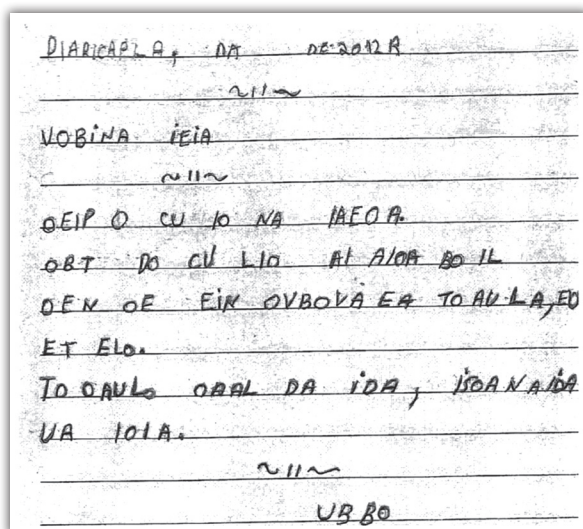 DIARICAPLA, DA DE-2012R
~11~
VOBINA IEIA
~11~
OEIP O CU IO NA IAEOA.
OBT DO CU LIO AI AIOA BO IL
OEN OE EIN OVBOVA EA TO AU.LA, EO
ET ELO.
TO OAULO OAAL DA IDA, ISOANAIDA
UA IOIA.
~11~
UBBO